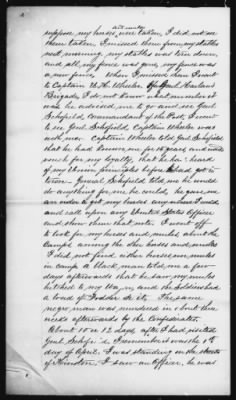 and mules
suppose my horses were taken, I did not see
them taken, I missed them from my stables
next morning, my stables was torn down
and all, my fence was gone, my fence was
a new fence, When I missed them I went
to Captain W. H. Wheeler Genl Garlands
Brigade, I do not know what number it
was he advised me to go and see Genl
Schofield, Commandant of the Post, I went
to see Genl Schofield, Captain Wheeler was
with me. Captain Wheeler told Genl Schofield
that he had known me for 15 years and would
vouch for my loyalty, that he had heard
of my Union principles before I had got in
town. General Schofield told me he would
do anything for me he could, he gave me
an order to get my horses any where I could
and call upon any United States Officer
and show them that note. I went off
to look for my horses and mules about the
Camps among the other horses and mules
I did not find either horses or mules
in camp a black man told me a few
days afterwards that he saw my mules
hitched to my Wagon, and the Soldiers had
a load of Fodder in it, The same
negro man was murdered in about three
weeks afterwards by the Confederates.
About 10 or 12 days after I had visited
Genl. Schofield I remember it was the 1st
day of April. I was standing on the streets
of Kinston, I saw an officer, he was